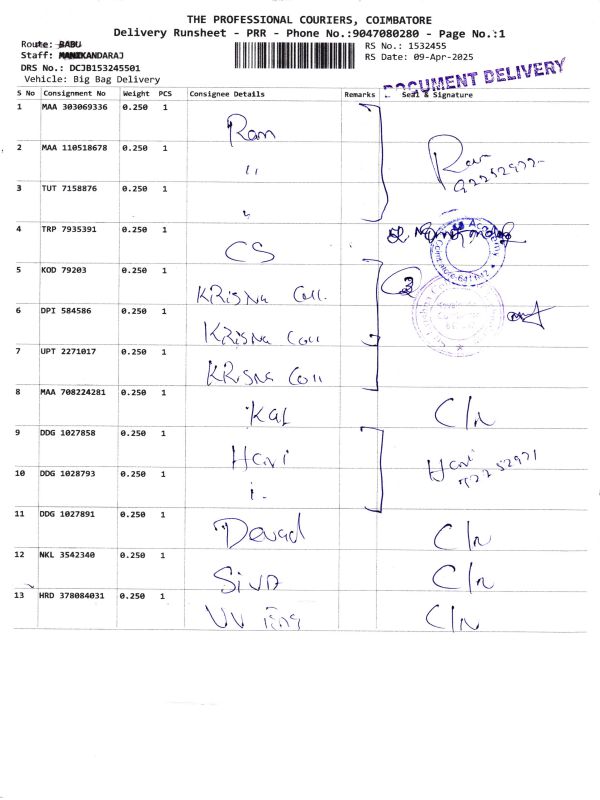 THE PROFESSIONAL COURIERS, COIMBATORE
Delivery Runsheet - PRR - Phone No.:9047080280 - Page No.:1
Route: BABU
RS No.: 1532455
Staff: MANIKANDARAJ
RS Date: 09-Apr-2025
DRS No.: DCJB153245501
Vehicle: Big Bag Delivery
DOCUMENT DELIVERY
S No Consignment No Weight PCS Consignee Details Remarks Seal & Signature
1 MAA 303069336 0.250 1 Ram
2 MAA 110518678 0.250 1 "
3 TUT 7158876 0.250 1 "
4 TRP 7935391 0.250 1 CS
5 KOD 79203 0.250 1 KRisna Coll.
6 DPI 584586 0.250 1 KRisna Coll
7 UPT 2271017 0.250 1 KRisna Coll
8 MAA 708224281 0.250 1 Kal C/n
9 DDG 1027858 0.250 1 Hari Hari
10 DDG 1028793 0.250 1
11 DDG 1027891 0.250 1 C/n
12 NKL 3542340 0.250 1 Siva C/n
13 HRD 378084031 0.250 1 C/n